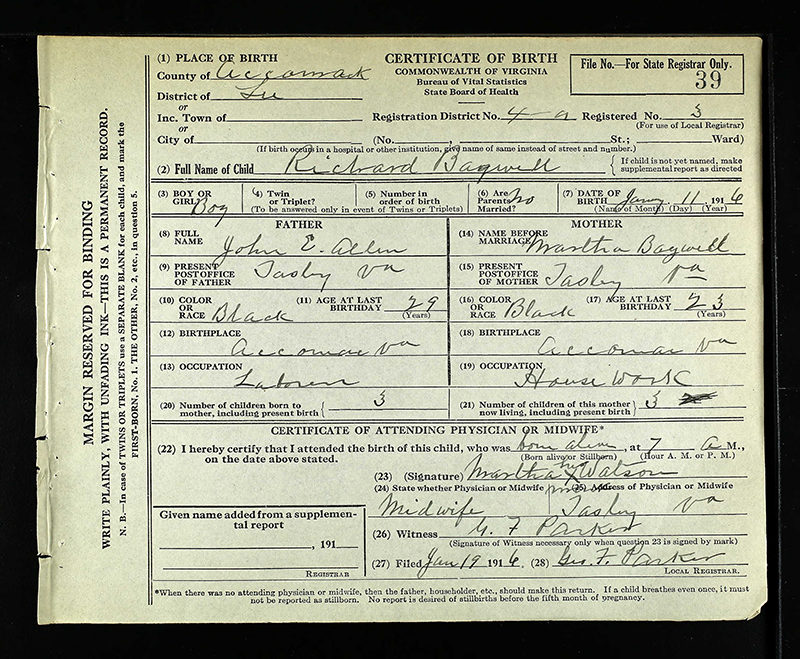 MARGIN RESERVED FOR BINDING
WRITE PLAINLY, WITH UNFADING INK—THIS IS A PERMANENT RECORD.
N. B.—In case of TWINS OR TRIPLETS use a SEPARATE BLANK for each child, and mark the
FIRST-BORN, No. 1. THE OTHER, No. 2, etc., in question 5.
(1) PLACE OF BIRTH
County of Accomack
District of Lee
or
Inc. Town of
or
City of
CERTIFICATE OF BIRTH
COMMONWEALTH OF VIRGINIA
Bureau of Vital Statistics
State Board of Health
File No.—For State Registrar Only.
39
Registration District No. 4-a Registered No. 3
(For use of Local Registrar)
(No. St.; Ward)
(If birth occurs in a hospital or other institution, give name of same instead of street and number.)
(2) Full Name of Child Richard Bagwell { If child is not yet named, make supplemental report as directed
(3) BOY OR GIRL? Boy
(4) Twin or Triplet?
(5) Number in order of birth
(To be answered only in event of Twins or Triplets)
(6) Are Parents Married? No
(7) DATE OF BIRTH Jany. 11, 1916
(Name of Month) (Day) (Year)
FATHER
(8) FULL NAME John E. Allen
(9) PRESENT POSTOFFICE OF FATHER Tasley Va
(10) COLOR OR RACE Black (11) AGE AT LAST BIRTHDAY 29
(Years)
(12) BIRTHPLACE
Accomac Va
(13) OCCUPATION
Laborer
(20) Number of children born to mother, including present birth } 3
MOTHER
(14) NAME BEFORE MARRIAGE Martha Bagwell
(15) PRESENT POSTOFFICE OF MOTHER Tasley Va
(16) COLOR OR RACE Black (17) AGE AT LAST BIRTHDAY 23
(Years)
(18) BIRTHPLACE
Accomac Va
(19) OCCUPATION
House Work
(21) Number of children of this mother now living, including present birth } 3
CERTIFICATE OF ATTENDING PHYSICIAN OR MIDWIFE*
(22) I hereby certify that I attended the birth of this child, who was born alive, at 7 A M.,
on the date above stated. (Born alive or Stillborn) (Hour A. M. or P. M.)
(23) (Signature) Martha X Watson
(24) State whether Physician or Midwife (25) Address of Physician or Midwife
Midwife Tasley Va
(26) Witness G. F. Parker
(Signature of Witness necessary only when question 23 is signed by mark)
(27) Filed Jan 19 1916 (28) Geo. F. Parker
LOCAL REGISTRAR.
Given name added from a supplemental report
, 191
REGISTRAR
*When there was no attending physician or midwife, then the father, householder, etc., should make this return. If a child breathes even once, it must
not be reported as stillborn. No report is desired of stillbirths before the fifth month of pregnancy.